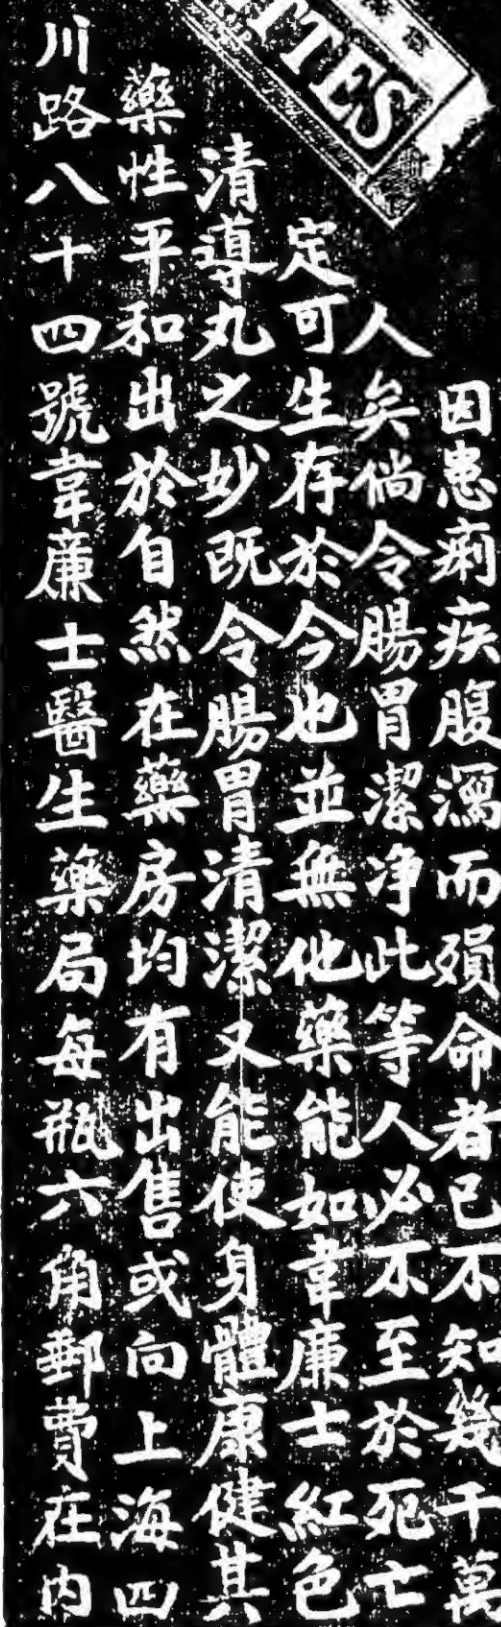 ITTES
因患痢疾腹瀉而殞命者已不知幾千萬
人矣倘令腸胃潔净此等人必不至於死亡
定可生存於今也並無他藥能如韋廉士紅色
清導丸之妙既令腸胃清潔又能使身體康健其
藥性平和出於自然在藥房均有出售或向上海四
川路八十四號韋廉士醫生藥局每瓶六角郵費在内